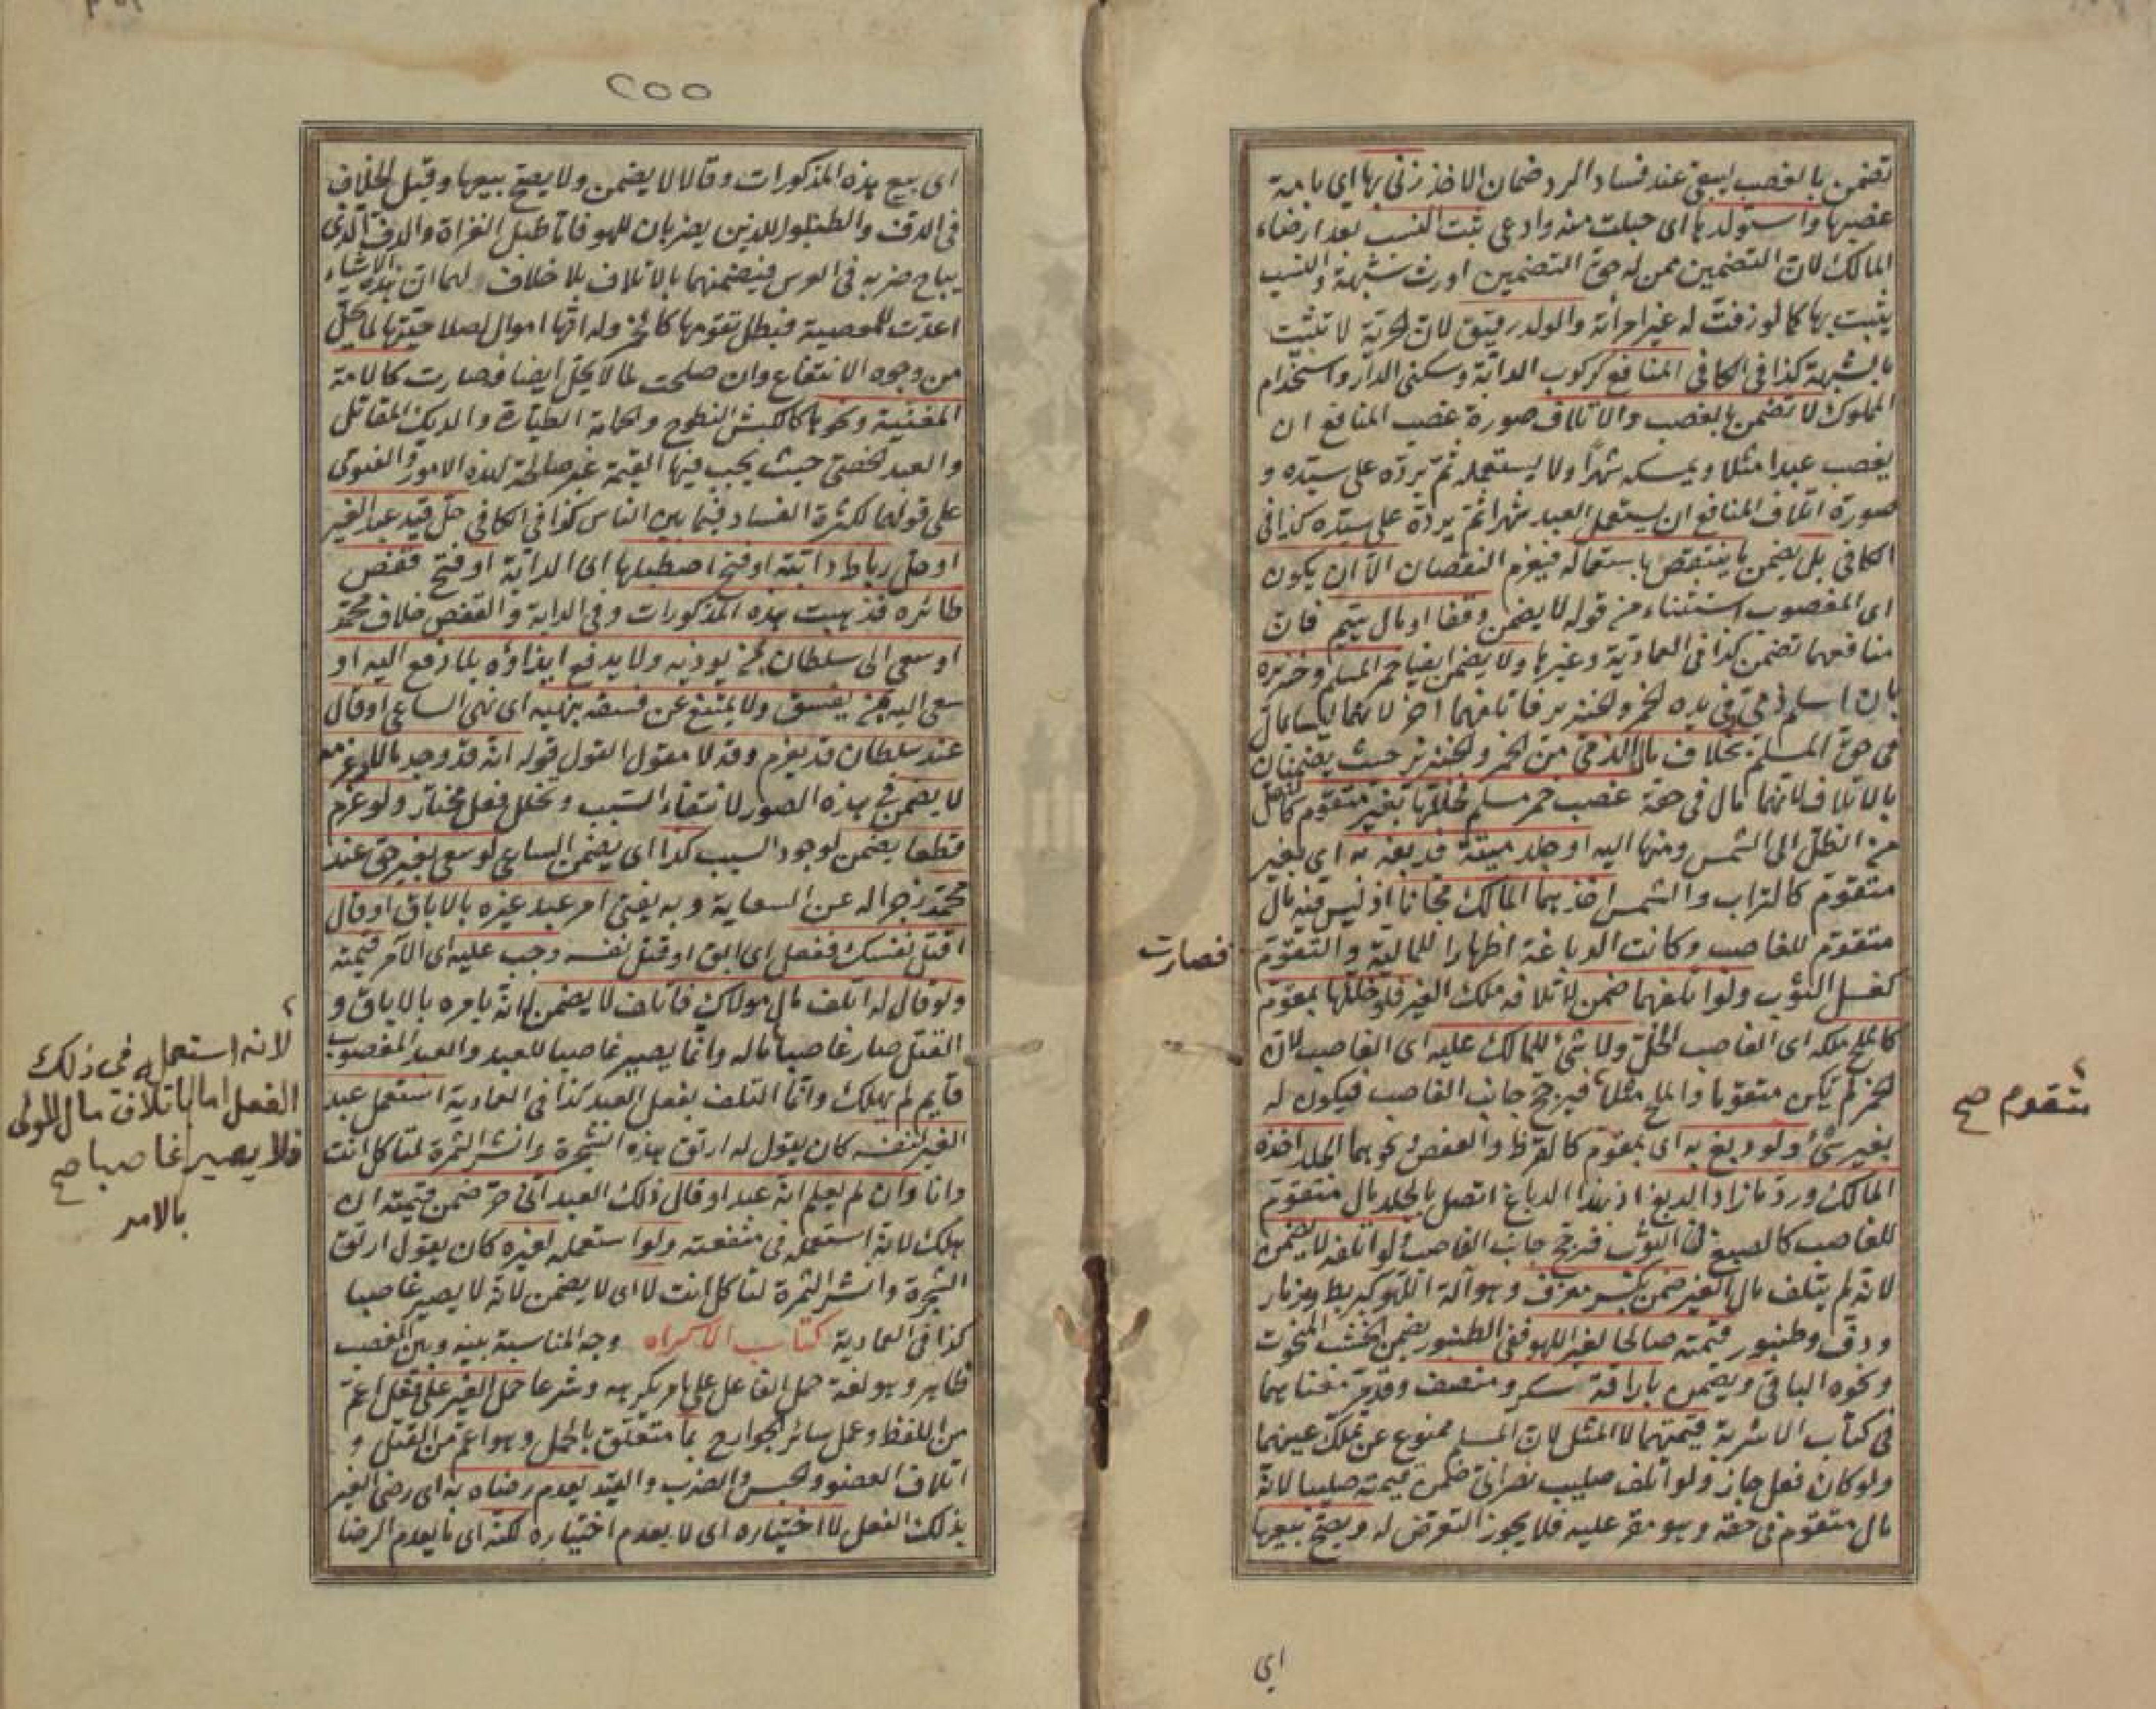 تضمن بالغصب ليبقى عند فساد الرد ضمان الاخذ زنى بها اى بامة
غصبها واستولدها اى حبلت منه وادعى ثبت النسب بعد ارضاء
المالك لان التضمين ممن له حق التضمين اورث شبهة والنسب
يثبت بها كما لو زفت له غير امرأته والولد رقيق لان الحرية لا تثبت
بالشبهة كذا فى الكافى المنافع كركوب الدابة وسكنى الدار واستخدام
المملوك لا تضمن بالغصب والاتلاف صورة غصب المنافع ان
يغصب عبدا مثلا ويمسكه شهرا ولا يستعمله ثم يرده على سيده و
صورة اتلاف المنافع ان يستعمل العبد شهرا ثم يرده على سيده كذا فى
الكافى بل يضمن ما ينتقص باستعماله فيغرم النقصان الا ان يكون
اى المغصوب استثناء من قوله لا يضمن وقفا او مال يتيم فان
منافعهما تضمن كذا فى العمادية وغيرها ولا يضمن ايضا خمر المسلم وخنزيره
بان اسلم ذمى وفى يده الخمر والخنزير فاتلفهما اخر لانهما ليسا بمال
فى حق المسلم بخلاف مال الذمى من الخمر والخنزير حيث يضمنان
بالاتلاف لانهما مال فى حقه غصب خمر مسلم فخللها بغير متقوم كالنقل
من الظل الى الشمس ومنها اليه او جلد ميتة فدبغه به اى بغير
متقوم كالتراب والشمس اخذهما المالك مجانا اذ ليس فيه مال
متقوم للغاصب وكانت الدباغة اظهارا للمالية والتقوم
فصارت
كغسل الثوب ولو اتلفهما ضمن لاتلافه ملك الغير فلو خللها بمقوم
كالملح ملكه اى الغاصب الخل ولا شئ للمالك عليه اى الغاصب لان
الخمر لم يكن متقوما والملح مثلا فيرجح جانب الغاصب فيكون له
متقوم صح
بغير شئ ولو دبغ به اى بمقوم كالقرظ والعفص ونحوهما الجلد اخذه
المالك ورد ما زاد الدبغ اذ بهذا الدباغ اتصل بالجلد مال متقوم
للغاصب كالصبغ فى الثوب فيرجح جانب الغاصب ولو اتلفه لا يضمن
لانه لم يتلف مال الغير ضمن بكسر معزف وهو آلة اللهو كبربط ومزمار
ودف وطنبور قيمته صالحا لغير اللهو ففى الطنبور يضمن الخشب المنحوت
ونحوه الباقى ويضمن باراقة سكر ومنصف وقد مر معناهما
فى كتاب الاشربة قيمتهما لا المثل لان المسلم ممنوع عن تملك عينهما
ولو كان فعل جاز ولو اتلف صليب نصرانى ضمن قيمته صليبا لانه
مال متقوم فى حقه وهو مقر عليه فلا يجوز التعرض له ويصح بيعها
اى
٢٥٥
اى بيع هذه المذكورات وقالا لا يضمن ولا يصح بيعها وقيل الخلاف
فى الدف والطنبور اللذين يضربان للهو فاما طبل الغزاة والدف الذى
يباح ضربه فى العرس فيضمنهما بالاتلاف بلا خلاف لهما ان هذه الاشياء
اعدت للمعصية فبطل تقومها كالخمر وله انها اموال لصلاحيتها لما يحل
من وجوه الانتفاع وان صلحت لما لا يحل ايضا فصارت كالامة
المغنية ونحوها كالكبش النطوح والحمامة الطيارة والديك المقاتل
والعبد الخصى حيث يجب فيها القيمة غير صالحة لهذه الامور والفتوى
على قولهما لكثرة الفساد فيما بين الناس كذا فى الكافى حل قيد عبد الغير
او حل رباط دابته او فتح اصطبلها اى الدابة او فتح قفص
طائره فذهبت هذه المذكورات وفى الدابة والقفص خلاف محمد
او سعى الى سلطان بمن يوذيه ولا يدفع ايذاؤه بلا رفع اليه او
سعى اليه بمن يفسق ولا يمتنع عن فسقه بنهيه اى نهى الساعى او قال
عند سلطان قد يغرم وقد لا مقول القول قوله انه قد وجد مالا فغرمه
لا يضمن فى هذه الصور لانتفاء السبب وتخلل فعل مختار ولو غرم
قطعا يضمن لوجود السبب كذا اى يضمن الساعى لو سعى بغير حق عند
محمد زجرا له عن السعاية وبه يفتى امر عبد غيره بالاباق او قال
اقتل نفسك ففعل اى ابق او قتل نفسه وجب عليه اى الآمر قيمته
ولو قال له اتلف مال مولاك فاتلف لا يضمن لانه بامره بالاباق و
القتل صار غاصبا ماله وانما يصير غاصبا للعبد والعبد المغصوب
قايم لم يهلك وانما التلف بفعل العبد كذا فى العمادية استعمل عبد
الغير لنفسه كان يقول له ارتق هذه الشجرة وانشر الثمرة لتاكل انت
وانا وان لم يعلم انه عبد او قال ذلك العبد انى حر ضمن قيمته ان
هلك لانه استعمله فى منفعته ولو استعمله لغيره كان يقول ارتق
الشجرة وانشر الثمرة لتاكل انت لا اى لا يضمن لانه لا يصير غاصبا
كذا فى العمادية كتاب الاكراه وجه المناسبة بينه وبين الغصب
ظاهر وهو لغة حمل الفاعل على امر يكرهه وشرعا حمل الغير على فعل اعم
من اللفظ وعمل سائر الجوارح بما متعلق بالحمل وهو اعم من القتل و
اتلاف العضو والحبس والضرب والقيد يعدم رضاه به اى رضى الغير
بذلك الفعل لا اختياره اى لا يعدم اختياره لكنه اى ما يعدم الرضا
لانه استعمله فى ذلك
الفعل اما باتلاف مال المولى
فلا يصير غاصبا صح
بالامر